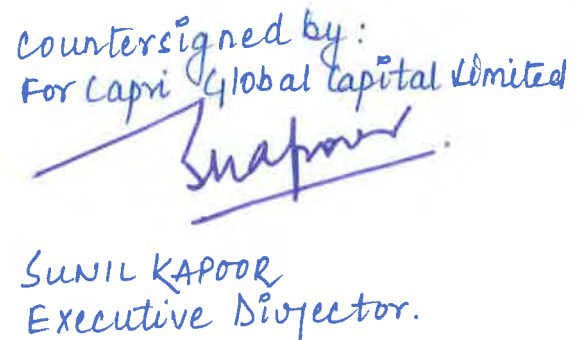 Countersigned by:
For Capri Global Capital Limited
SUNIL KAPOOR
Executive Director.